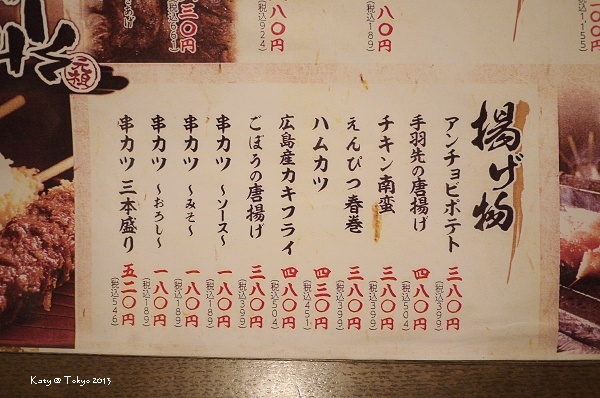 揚げ物
アンチョビポテト 三八〇円 (税込399)
手羽先の唐揚げ 四八〇円 (税込504)
チキン南蛮 三八〇円 (税込399)
えんぴつ春巻 三八〇円 (税込399)
ハムカツ 四三〇円 (税込451)
広島産カキフライ 四八〇円 (税込504)
ごぼうの唐揚げ 三八〇円 (税込399)
串カツ ～ソース～ 一八〇円 (税込189)
串カツ ～みそ～ 一八〇円 (税込189)
串カツ ～おろし～ 一八〇円 (税込189)
串カツ 三本盛り 五二〇円 (税込546)
八〇円
(税込189)
八〇円
(税込924)
三〇円
(税込661)
〇円
(税込1,155)
Katy @ Tokyo 2013